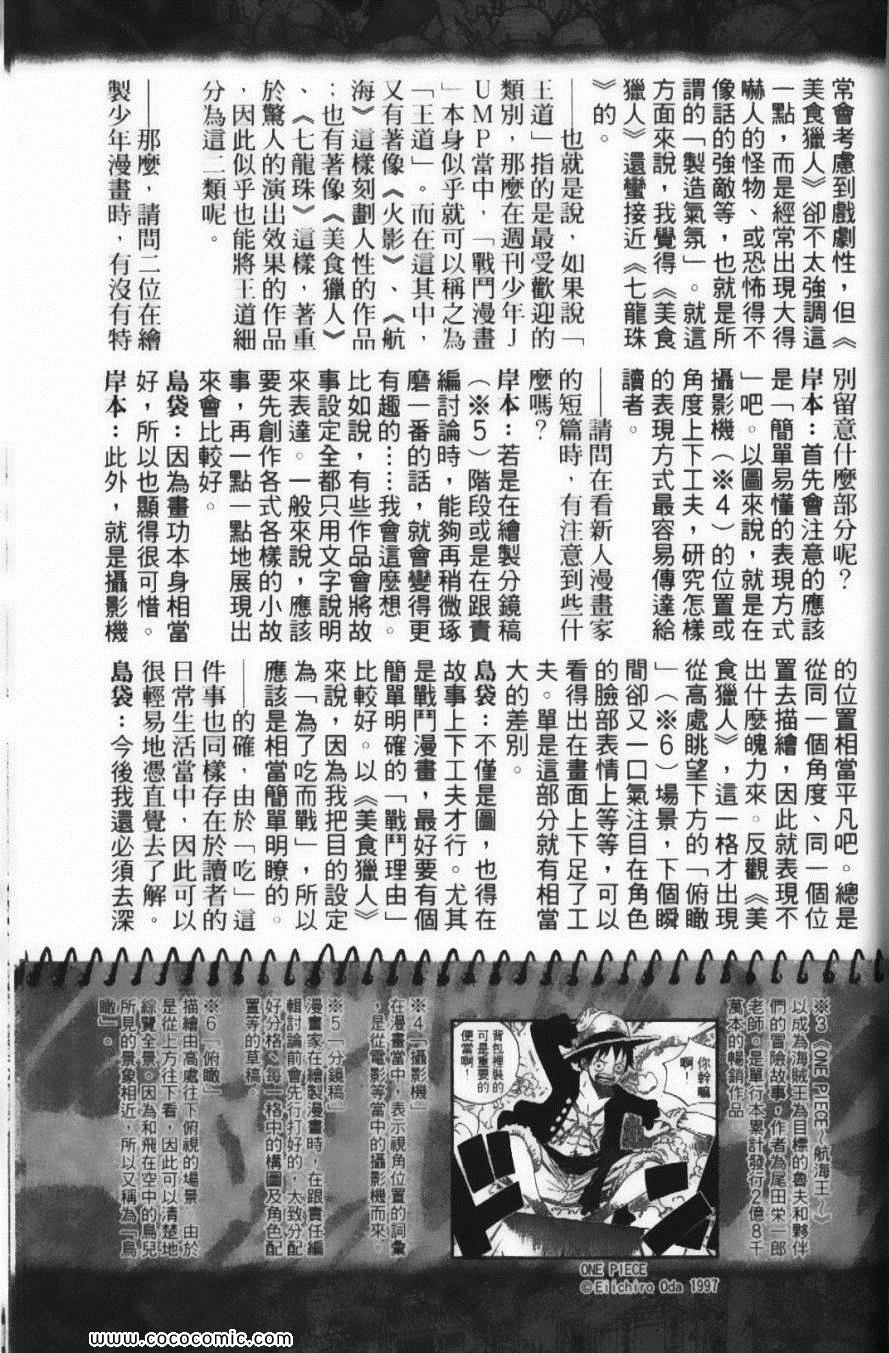 常會考慮到戲劇性，但《
美食獵人》卻不太強調這
一點，而是經常出現大得
嚇人的怪物、或恐怖得不
像話的強敵等，也就是所
謂的「製造氣氛」。就這
方面來說，我覺得《美食
獵人》還蠻接近《七龍珠
》的。
——也就是說，如果說「
王道」指的是最受歡迎的
類別，那麼在週刊少年J
UMP當中，「戰鬥漫畫
」本身似乎就可以稱之為
「王道」。而在這其中，
又有著像《火影》、《航
海》這樣刻劃人性的作品
；也有著像《美食獵人》
、《七龍珠》這樣，著重
於驚人的演出效果的作品
，因此似乎也能將王道細
分為這二類呢。
——那麼，請問二位在繪
製少年漫畫時，有沒有特
別留意什麼部分呢？
岸本：首先會注意的應該
是「簡單易懂的表現方式
」吧。以圖來說，就是在
攝影機（※4）的位置或
角度上下工夫，研究怎樣
的表現方式最容易傳達給
讀者。
——請問在看新人漫畫家
的短篇時，有注意到些什
麼嗎？
岸本：若是在繪製分鏡稿
（※5）階段或是在跟責
編討論時，能夠再稍微琢
磨一番的話，就會變得更
有趣的……我會這麼想。
比如說，有些作品會將故
事設定全都只用文字說明
來表達。一般來說，應該
要先創作各式各樣的小故
事，再一點一點地展現出
來會比較好。
島袋：因為畫功本身相當
好，所以也顯得很可惜。
岸本：此外，就是攝影機
的位置相當平凡吧。總是
從同一個角度、同一個位
置去描繪，因此就表現不
出什麼魄力來。反觀《美
食獵人》，這一格才出現
從高處眺望下方的「俯瞰
」（※6）場景，下個瞬
間卻又一口氣注目在角色
的臉部表情上等等，可以
看得出在畫面上下足了工
夫。單是這部分就有相當
大的差別。
島袋：不僅是圖，也得在
故事上下工夫才行。尤其
是戰鬥漫畫，最好要有個
簡單明確的「戰鬥理由」
比較好。以《美食獵人》
來說，因為我把目的設定
為「為了吃而戰」，所以
應該是相當簡單明瞭的。
——的確，由於「吃」這
件事也同樣存在於讀者的
日常生活當中，因此可以
很輕易地憑直覺去了解。
島袋：今後我還必須去深
※3《ONE PIECE～航海王～》
以成為海賊王為目標的魯夫和夥伴
們的冒險故事，作者為尾田栄一郎
老師。是單行本累計發行2億8千
萬本的暢銷作品。
你幹嘛
啊！
背包裡裝的
可是重要的
便當啊！
ONE PIECE
©Eiichiro Oda 1997
※4「攝影機」
在漫畫當中，表示視角位置的詞彙
，是從電影等當中的攝影機而來。
※5「分鏡稿」
漫畫家在繪製漫畫時，在跟責任編
輯討論前會先行打好的，大致分配
好分格、每一格中的構圖及角色配
置等的草稿。
※6「俯瞰」
描繪由高處往下俯視的場景。由於
是從上方往下看，因此可以清楚地
綜覽全景。因為和飛在空中的鳥兒
所見的景象相近，所以又稱為「鳥
瞰」。
www.cococomic.com